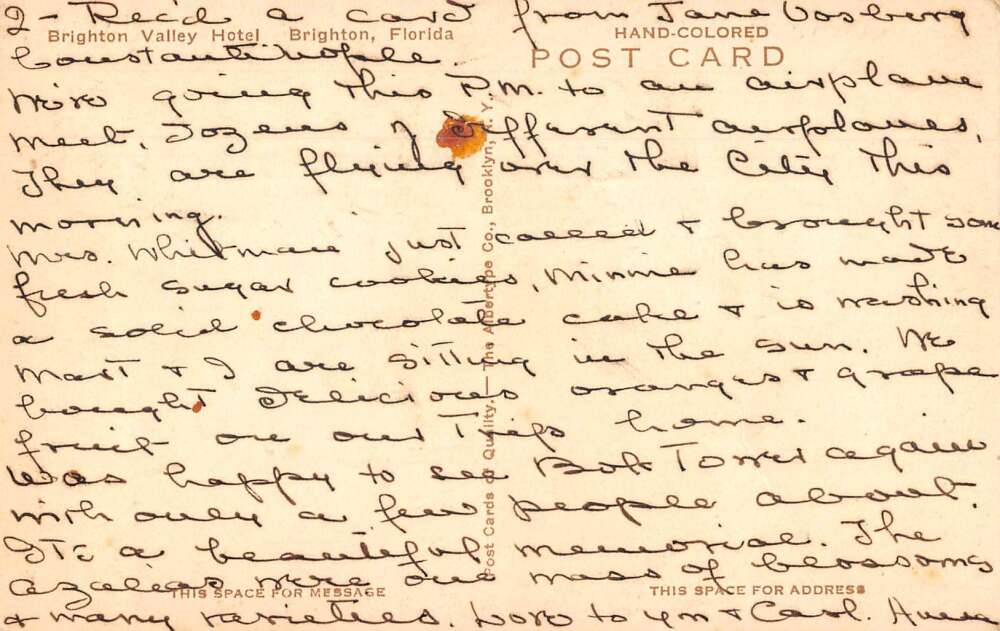 2- Rec'd a card from Jane Vosberg
Brighton Valley Hotel Brighton, Florida
HAND-COLORED
POST CARD
Constantinople.
We're going this P.M. to an airplane
meet. Dozens of different airplanes.
They are flying over the City this
morning.
Mrs. Whitman just called & brought some
fresh sugar cookies, Minnie has made
a solid chocolate cake & is washing
Matt & I are sitting in the sun. We
bought delicious oranges & grape
fruit on our Trip home.
Was happy to see Bok Tower again
with only a few people about.
It's a beautiful memorial. The
azaleas were one mass of blossoms
& many varieties. Love to you & Carl.
THIS SPACE FOR MESSAGE
THIS SPACE FOR ADDRESS
Post Cards of Quality.—The Albertype Co., Brooklyn, N. Y.